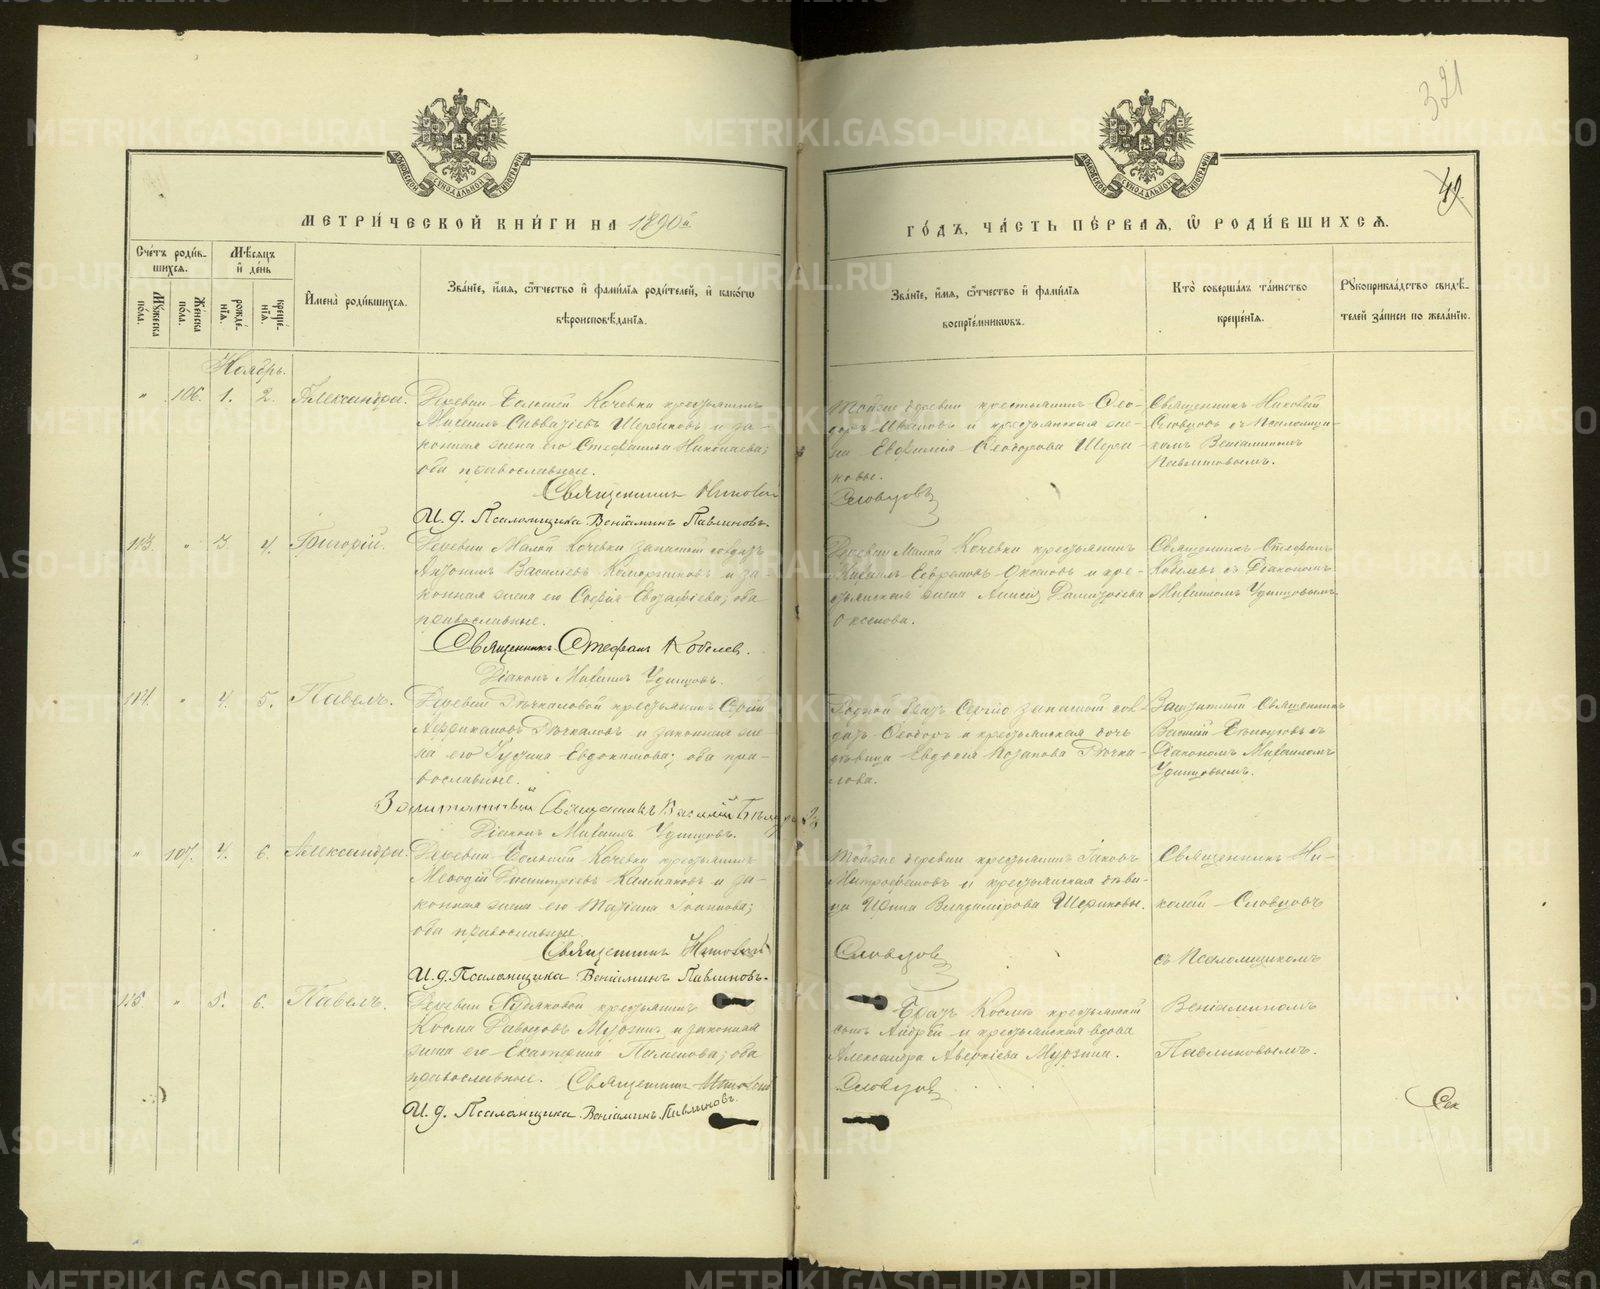 321
49.
МЕТРИ́ЧЕСКОЙ КНИ́ГИ НА 1890й
ГО́ДЪ, ЧА́СТЬ ПЕ́РВАЯ, Ѽ РОДИ́ВШИХСЯ.
Сче́тъ роди́в-
шихся.
Мѣ́сяцъ
и҆ де́нь
Мꙋ́жеска
по́ла.
Же́нска
по́ла.
рожде́-
нїя.
креще́-
нїя.
И҆мена̀ роди́вшихся.
Зва́нїе, и҆́мя, ѻ҆́тчество и҆ фами́лїѧ роди́телей, и҆ како́гѡ
вѣроисповѣ́данїя.
Зва́нїе, и҆́мя, ѻ҆́тчество и҆ фами́лїѧ
воспрїе́мникѡвъ.
Кто̀ соверша́лъ та́инство
креще́нїя.
Рꙋкоприкла́дство свидѣ́-
телей за́писи по жела́нїю.
Ноябрь.
" 106. 1. 2. Александра.
Деревни Большей Кочевки крестьянинъ
Михаилъ Шериковъ и за-
конная жена его Стефанида Николаева;
оба православные.
Священникъ Николай
И. д. Псаломщика Венїаминъ Павлиновъ.
Тойже деревни крестьянинъ Ѳео-
доръ Ивановъ и крестьянская же-
на Евфимія Ѳеодорова Шери-
ковы.
Словцовъ
Священникъ Николай
Словцовъ съ Псаломщи-
комъ Веніаминомъ
Павлиновымъ.
113. " 3. 4. Григорій.
Деревни Малой Кочевки запасной солдатъ
Антонинъ Василіевъ и за-
конная жена его Софія; оба
православные.
Священникъ Стефанъ Кобелев.
Діаконъ Михаилъ Удинцовъ.
Деревни Малой Кочевки крестьянинъ
Михаилъ Оксеновъ и кре-
стьянская жена Анисія Димитріева
Оксенова.
Священникъ Стефанъ
Кобелевъ съ Діакономъ
Михаиломъ Удинцовымъ.
114. " 4. 5. Павелъ.
Деревни Рычкаловой крестьянинъ Сергій
Африкановъ Рычкаловъ и законная же-
на его Іустина Евдокимова; оба пра-
вославные.
Заштатный Священникъ Василій
Діаконъ Михаилъ Удинцовъ.
Родной братъ Сергію запасной сол-
датъ Ѳеодоръ и крестьянская дочь
дѣвица Евдокія Рычка-
лова.
Заштатный Священникъ
Василій съ
Діакономъ Михаиломъ
Удинцовымъ.
" 107. 4. 6. Александра.
Деревни Большей Кочевки крестьянинъ
Меѳодій Димитріевъ Калмаковъ и за-
конная жена его Татіана Іоаннова;
оба православные.
Священникъ Николай
И. д. Псаломщика Венїаминъ Павлиновъ.
Тойже деревни крестьянинъ Іаковъ
Митрофановъ и крестьянская дѣви-
ца Ирина Владимірова Шериковы.
Словцовъ
Священникъ Ни-
колай Словцовъ
съ Псаломщикомъ
Веніаминомъ
Павлиновымъ.
115 " 5. 6. Павелъ.
Деревни крестьянинъ
Косма Давыдовъ Мурзинъ и законная
жена его Екатерина Пименова; оба
православные. Священникъ Николай
И. д. Псаломщика Венїаминъ Павлиновъ.
Братъ Космы крестьянскій
сынъ Андрей и крестьянская вдова
Александра Аверкіева Мурзина.
Словцовъ